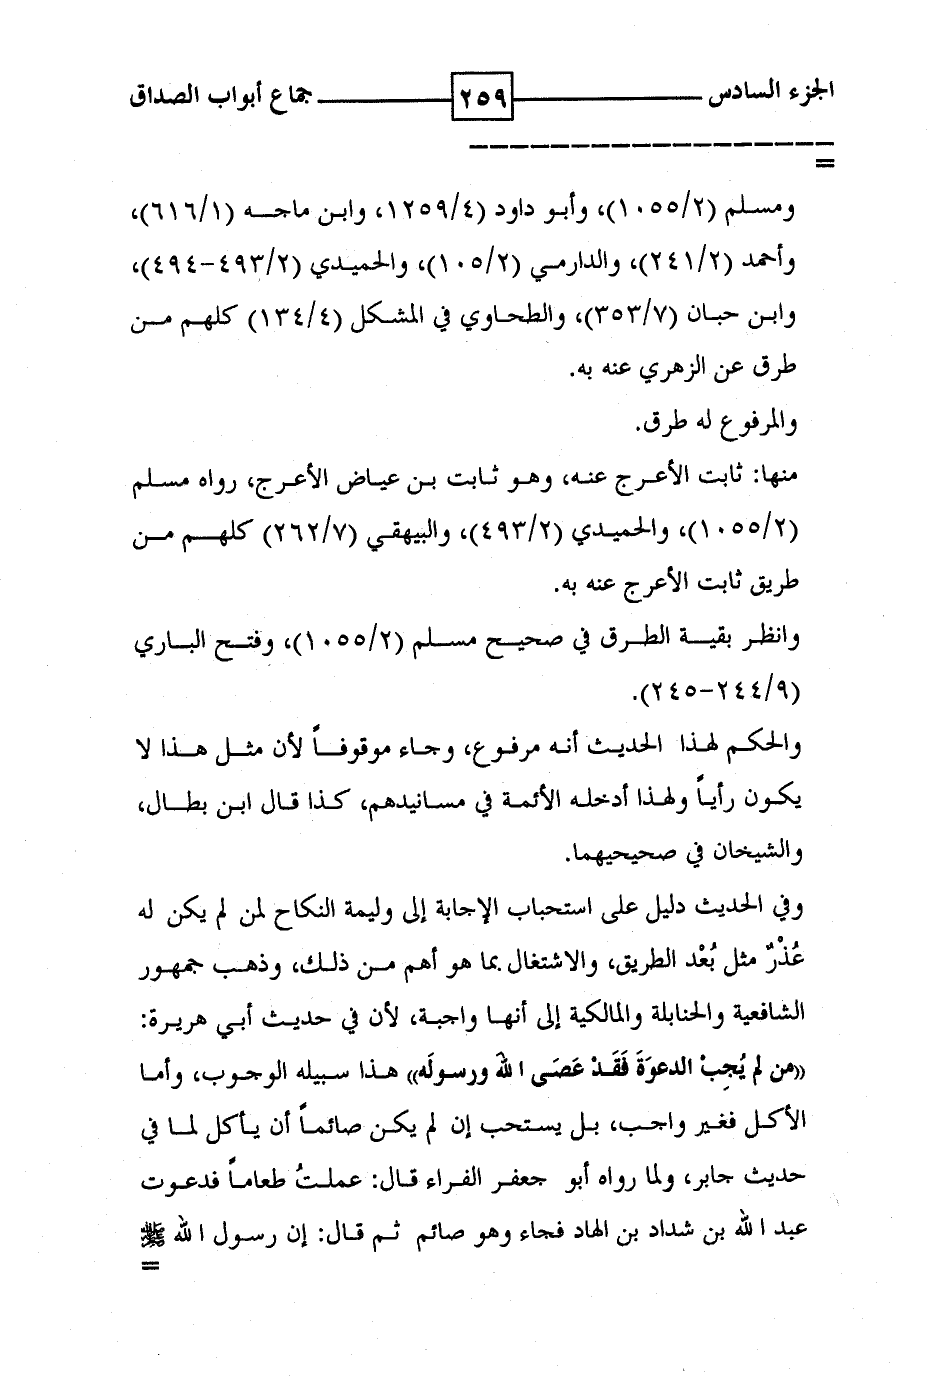 الجزء السادس ٢٥٩ جماع أبواب الصداق
=
ومسلم (١٠٥٥/٢)، وأبو داود (١٢٥٩/٤، وابن ماجه (٦١٦/١)،
وأحمد (٢٤١/٢)، والدارمي (١٠٥/٢)، والحميدي (٤٩٣/٢-٤٩٤)،
وابن حبان (٣٥٣/٧)، والطحاوي في المشكل (١٣٤/٤) كلهم من
طرق عن الزهري عنه به.
والمرفوع له طرق.
منها: ثابت الأعرج عنه، وهو ثابت بن عياض الأعرج، رواه مسلم
(١٠٥٥/٢)، والحميدي (٤٩٣/٢)، والبيهقي (٢٦٢/٧) كلهم من
طريق ثابت الأعرج عنه به.
وانظر بقية الطرق في صحيح مسلم (١٠٥٥/٢)، وفتح الباري
(٢٤٤/٩-٢٤٥).
والحكم لهذا الحديث أنه مرفوع، وجاء موقوفاً لأن مثل هذا لا
يكون رأياً ولهذا أدخله الأئمة في مسانيدهم، كذا قال ابن بطال،
والشيخان في صحيحيهما.
وفي الحديث دليل على استحباب الإجابة إلى وليمة النكاح لمن لم يكن له
عُذْرٌ مثل بُعْد الطريق، والاشتغال بما هو أهم من ذلك، وذهب جمهور
الشافعية والحنابلة والمالكية إلى أنها واجبة، لأن في حديث أبي هريرة:
«من لم يُجِبْ الدعوَةَ فَقَدْ عَصَى الله ورسولَه» هذا سبيله الوجوب، وأما
الأكل فغير واجب، بل يستحب إن لم يكن صائماً أن يأكل لما في
حديث جابر، ولما رواه أبو جعفر الفراء قال: عملتُ طعاماً فدعوت
عبد الله بن شداد بن الهاد فجاء وهو صائم ثم قال: إن رسول الله ﷺ
=